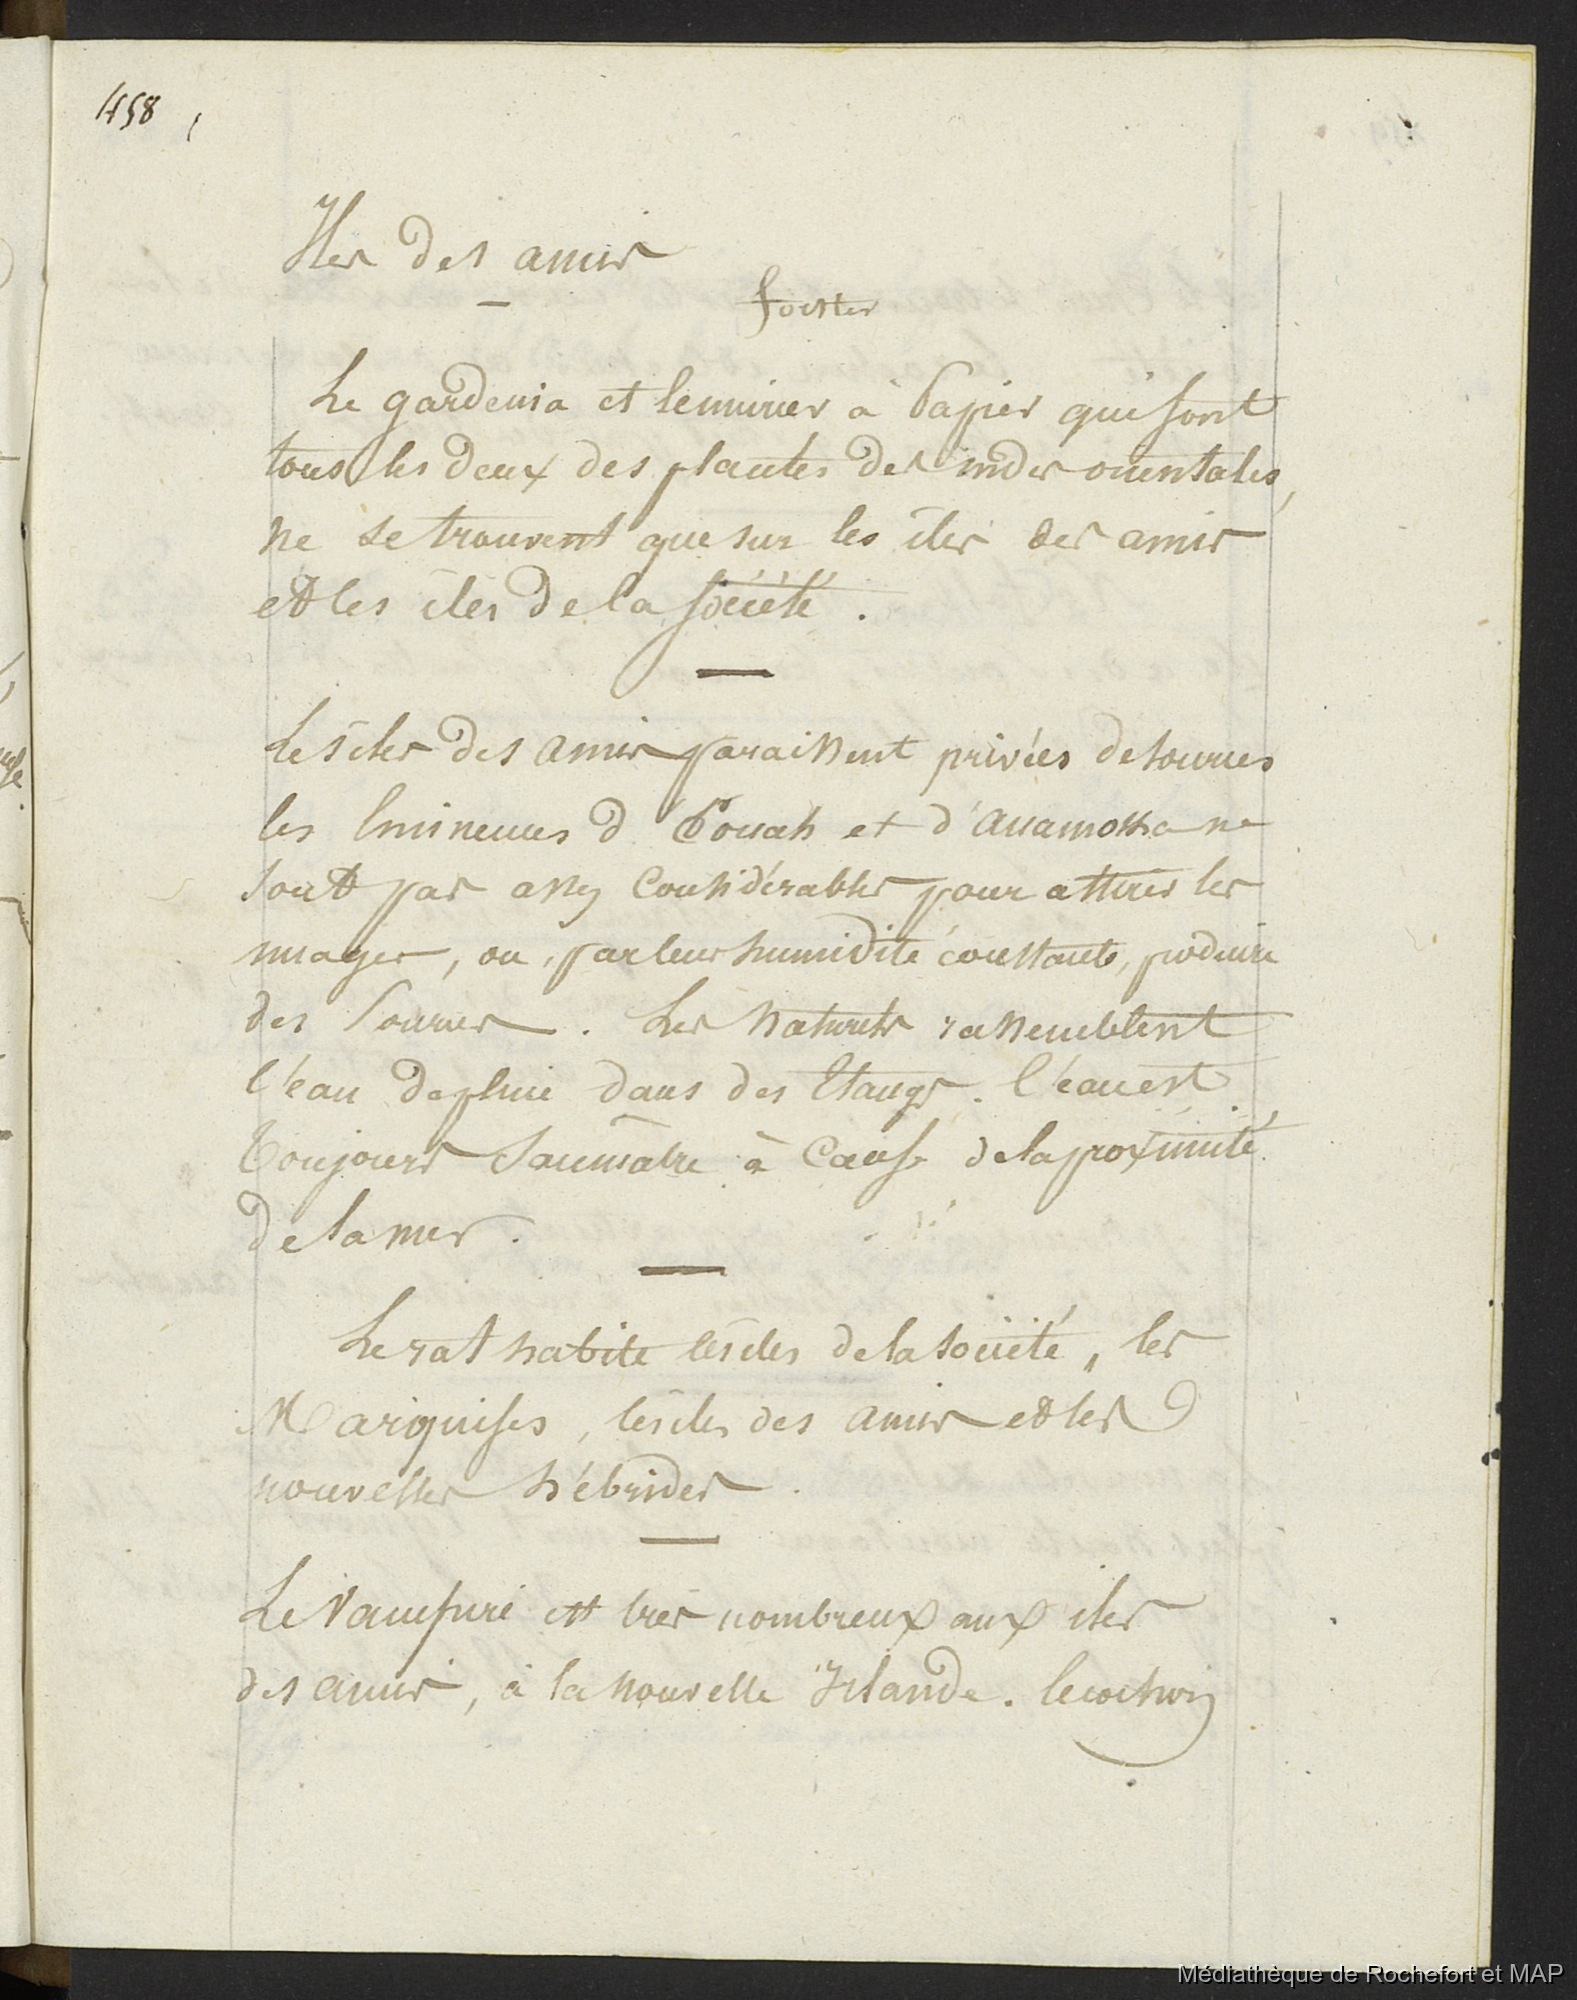 458
Iles des amis
forster
Le gardenia et le murier à Papier qui sont
tous les deux des plantes des indes orientales,
ne se trouvent que sur les iles des amis
et les iles de la société.
Les iles des amis paraissent privées de sources
les Eminences d'Eouah et d'anamoka ne
sont pas assez Considérables pour attirer les
nuages, ou, par leur humidité constante, produire
des Sources. Les Naturels rassemblent
l'éau de pluie dans des Etangs. l'éau est
Toujours Saumâtre à Cause de la proximité
de la mer.
Le rat habite les iles de la société, les
Marquises, les iles des amis et les
nouvelles hébrides.
Le Vampire est très nombreux aux iles
des amis, à la nouvelle Irlande. le cochon
Médiathèque de Rochefort et MAP